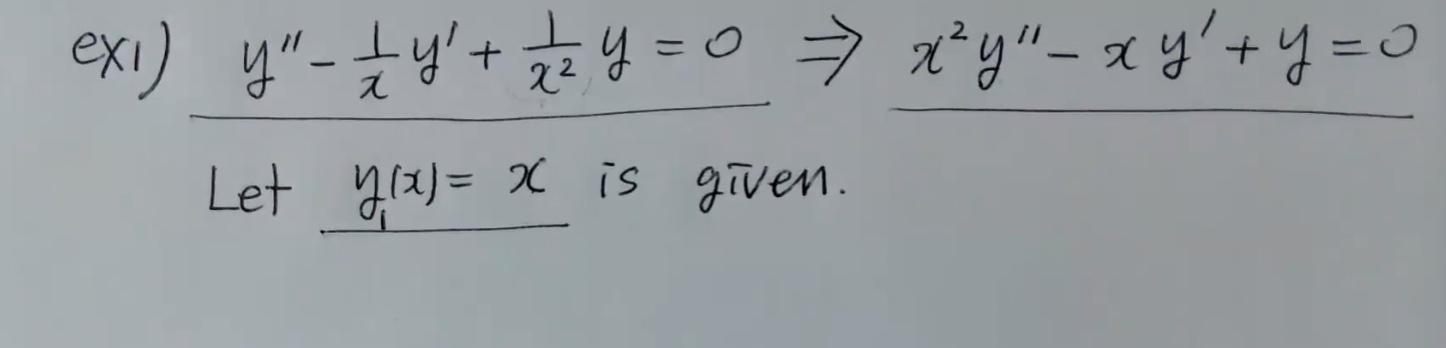 ex1) y'' - 1/x y' + 1/x² y = 0 ⇒ x²y'' - x y' + y = 0
Let y₁(x) = x is given.